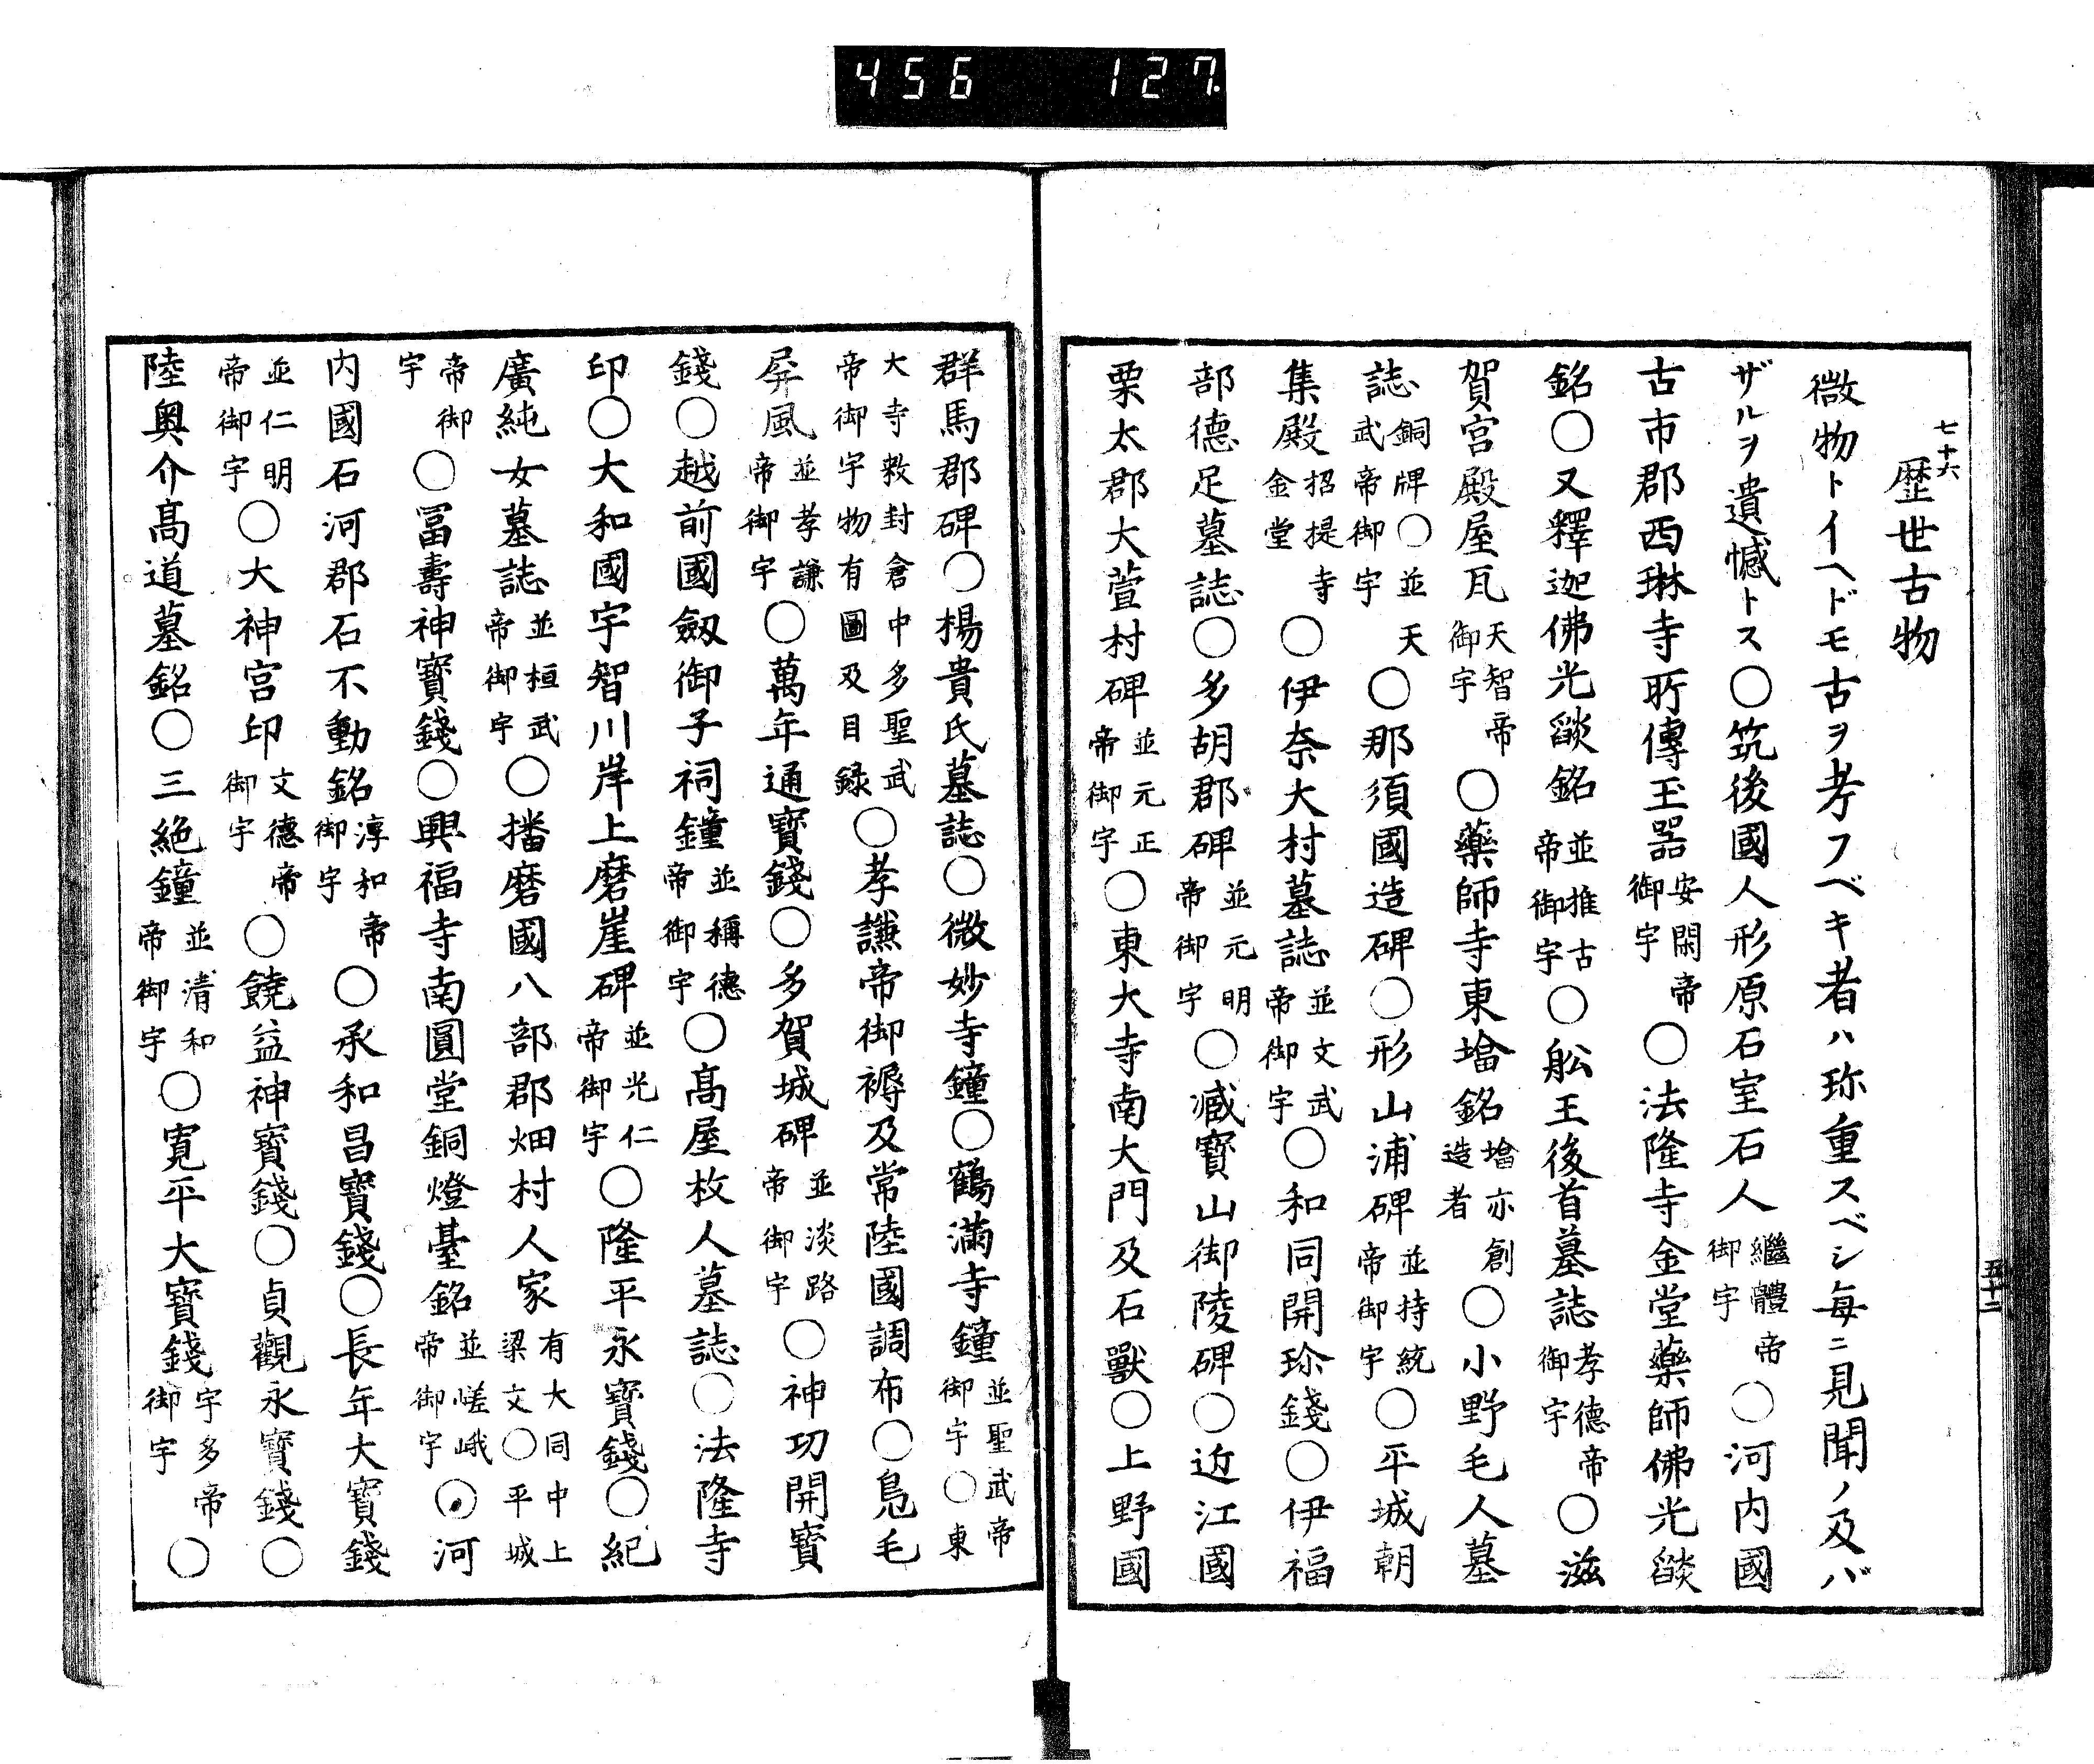 456 127
七十六
歴世古物
微物トイヘドモ古ヲ考フベキ者ハ珎重スベシ毎ニ見聞ノ及バ
ザルヲ遺憾トス〇筑後國人形原石室石人繼體帝御宇〇河内國
古市郡西琳寺所傳玉器安閑帝御宇〇法隆寺金堂藥師佛光燄
銘〇又釋迦佛光燄銘並推古帝御宇〇舩王後首墓誌孝德帝御宇〇滋
賀宮殿屋瓦天智帝御宇〇藥師寺東墖銘墖亦創造者〇小野毛人墓
誌銅牌〇並天武帝御宇〇那須國造碑〇形山浦碑並持統帝御宇〇平城朝
集殿招提寺金堂〇伊奈大村墓誌並文武帝御宇〇和同開珍錢〇伊福
部德足墓誌〇多胡郡碑並元明帝御宇〇蔵寶山御陵碑〇近江國
栗太郡大萱村碑並元正帝御宇〇東大寺南大門及石獸〇上野國
五十二
群馬郡碑〇楊貴氏墓誌〇微妙寺鐘〇鶴滿寺鐘並聖武帝御宇〇東
大寺敕封倉中多聖武帝御宇物有圖及目録〇孝謙帝御褥及常陸國調布〇鳬毛
屏風並孝謙帝御宇〇萬年通寳錢〇多賀城碑並淡路帝御宇〇神功開寳
錢〇越前國劔御子祠鐘並稱德帝御宇〇髙屋枚人墓誌〇法隆寺
印〇大和國宇智川岸上磨崖碑並光仁帝御宇〇隆平永寳錢〇紀
廣純女墓誌並桓武帝御宇〇播磨國八部郡畑村人家有大同中上梁文〇平城
帝御宇〇冨壽神寳錢〇興福寺南圓堂銅燈臺銘並嵯峨帝御宇〇河
内國石河郡石不動銘淳和帝御宇〇承和昌寳錢〇長年大寳錢
並仁明帝御宇〇大神宮印文德帝御宇〇饒益神寳錢〇貞觀永寳錢〇
陸奥介髙道墓銘〇三絶鐘並清和帝御宇〇寛平大寳錢宇多帝御宇〇